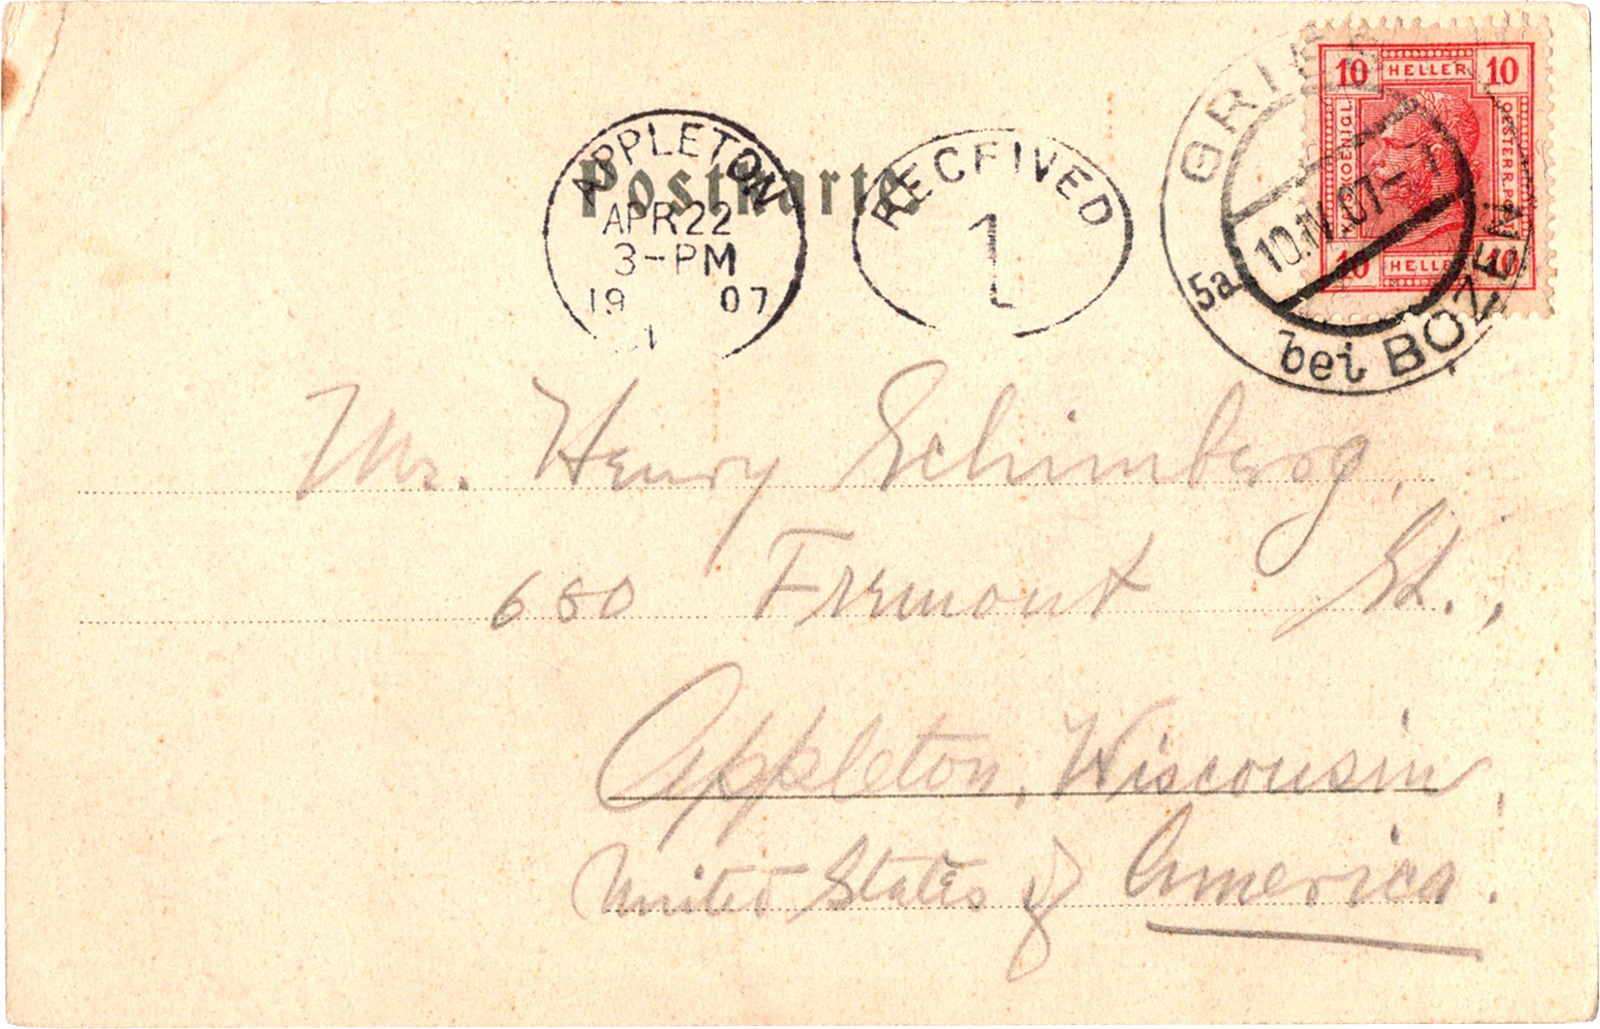 Postkarte
APPLETON
APR 22
3-PM
19 07
1
RECEIVED
1
GRIES
10.IV.07-7
5a
bei BOZEN
10 HELLER 10
KAIS. KOENIGL.
OESTERR. POST
10 HELLER 10
Mr. Henry Schimberg,
680 Fremont St.,
Appleton, Wisconsin,
United States of America.